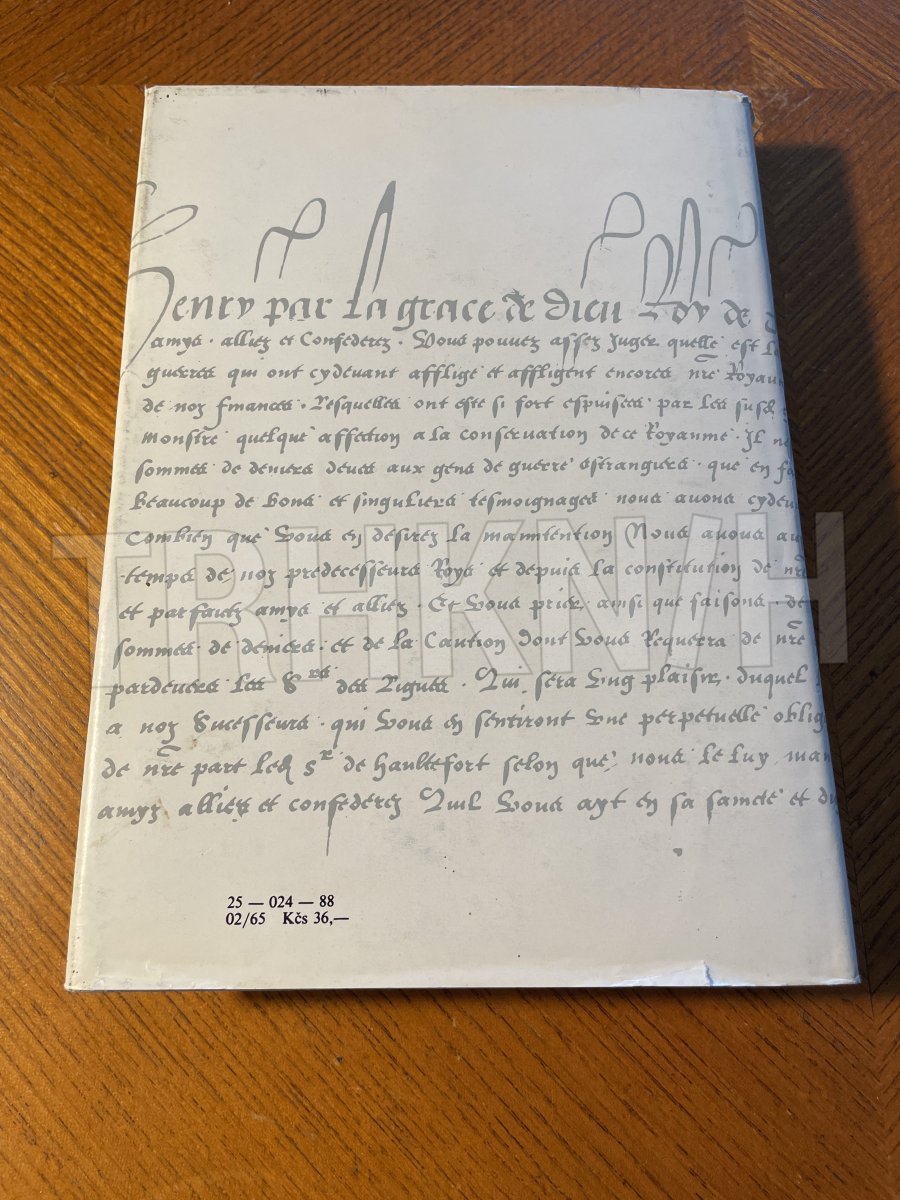 Henry par La grace de Dieu Roy de
amys . alliez et Confederez . Vous pouvez assez Juger quelle est
guerres qui ont cydevant afflige et affligent encores nre Royau
de noz finances . Lesquelles ont este si fort espuisees par les susd
monstre quelque affection a la conservation de ce Royaume . Il ne
sommes de deniers deues aux gens de guerre estrangers . que en fa
Beaucoup de bons et singuliers tesmoignages nous avons cydev
Combien que Vous en desirez La manutention Nous avons au
temps de noz predecesseurs Roys et depuis La constitution de nre
et parfaictz amys et alliez . Et Vous prier ainsi que faisons de
sommes de deniers . et de La Caution dont Vous Requerra de nre
pardevers Les Srs des Ligues . Qui sera Ung plaisir . duquel
a noz Sucesseurs . qui Vous en sentiront Une perpetuelle oblig
de nre part Led Sr de hautefort selon que nous Le Luy man
amys alliez et confederez Quil Vous ayt en sa saincte et di
25 — 024 — 88
02/65 Kčs 36,—
TRHKNIH